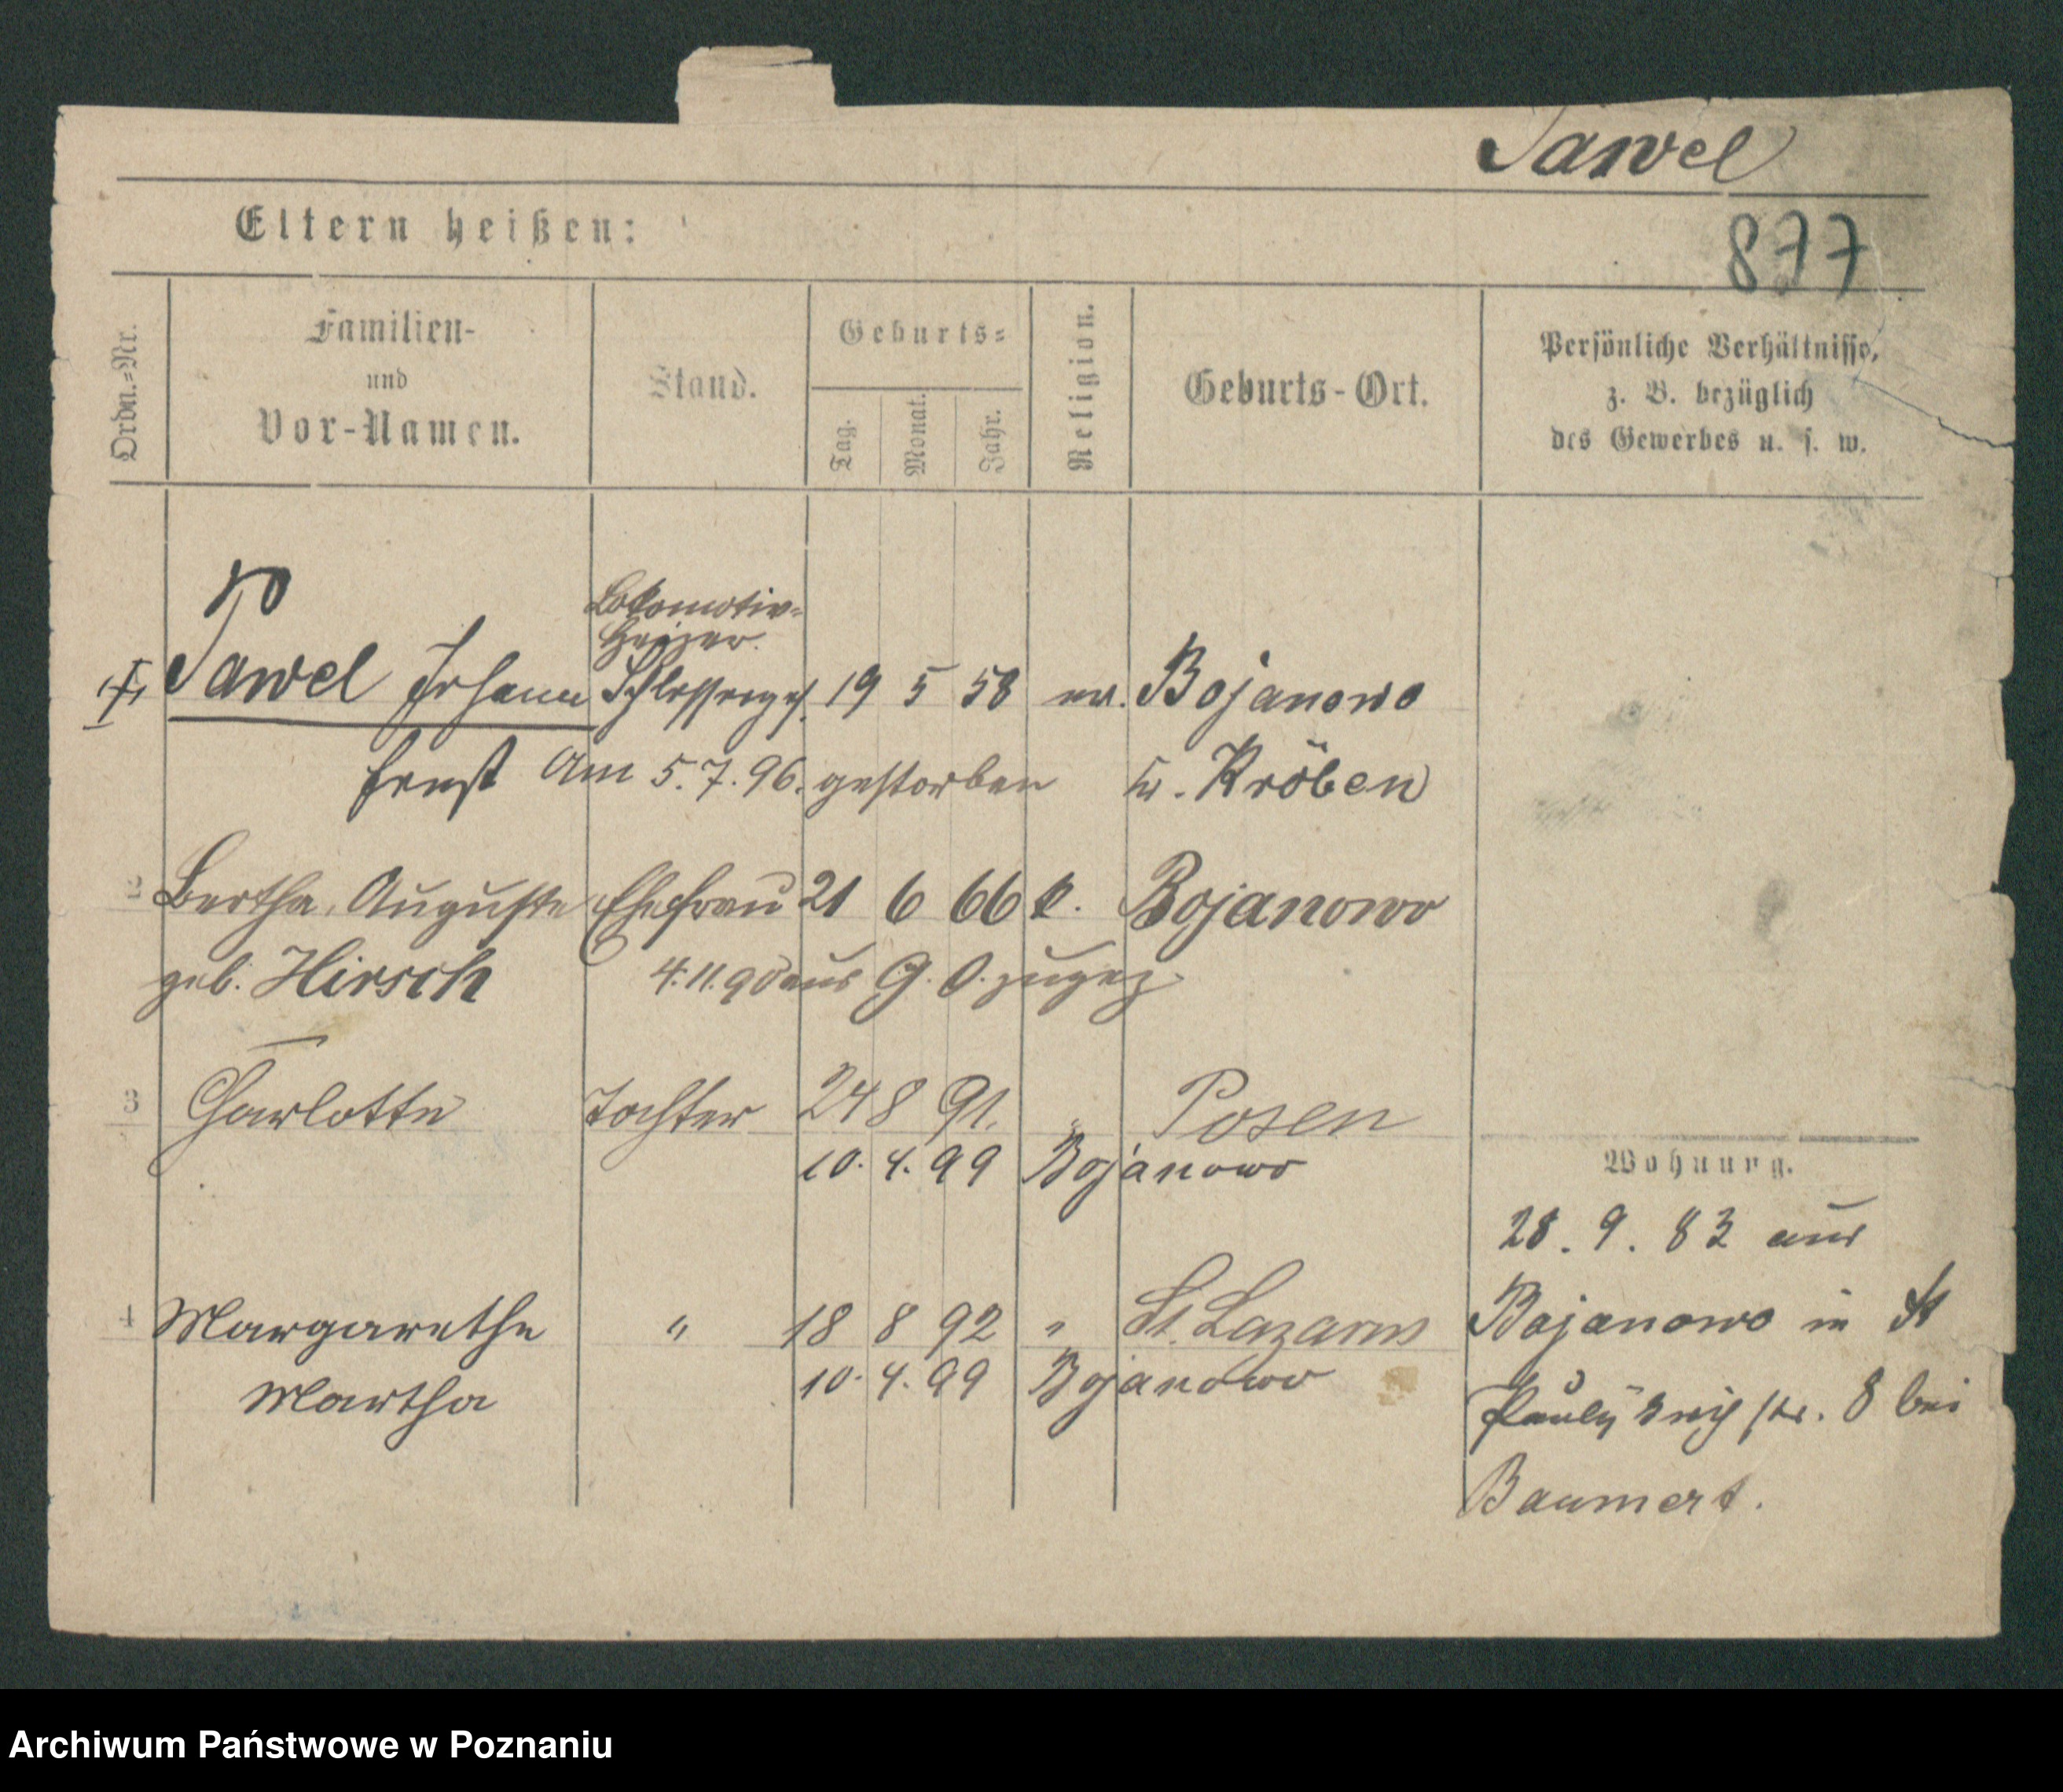 Pawel
877
Eltern heißen:
Ordn.-Nr.
Familien- und Vor-Namen.
Stand.
Geburts-
Tag.
Monat.
Jahr.
Religion.
Geburts-Ort.
Persönliche Verhältnisse,
z. B. bezüglich
des Gewerbes u. s. w.
Lokomotiv-
Heizer.
Pawel Johann Schlosserges. 19 5 58 ev. Bojanowo
Ernst Am 5.7.96. gestorben Kr. Kröben
2 Bertha, Auguste Ehefrau 21 6 66 k. Bojanowo
geb. Hirsch 4.11.90 aus G. O. zugez.
3 Charlotte Tochter 24 8 91. " Posen
10. 4. 99 Bojanowo
Wohnung.
28. 9. 83 aus
4 Margarethe " 18 8 92 " St. Lazarus
Bojanowo in St
10. 4. 99 Bojanowo
Martha
8 bei
Baumert.
Archiwum Państwowe w Poznaniu